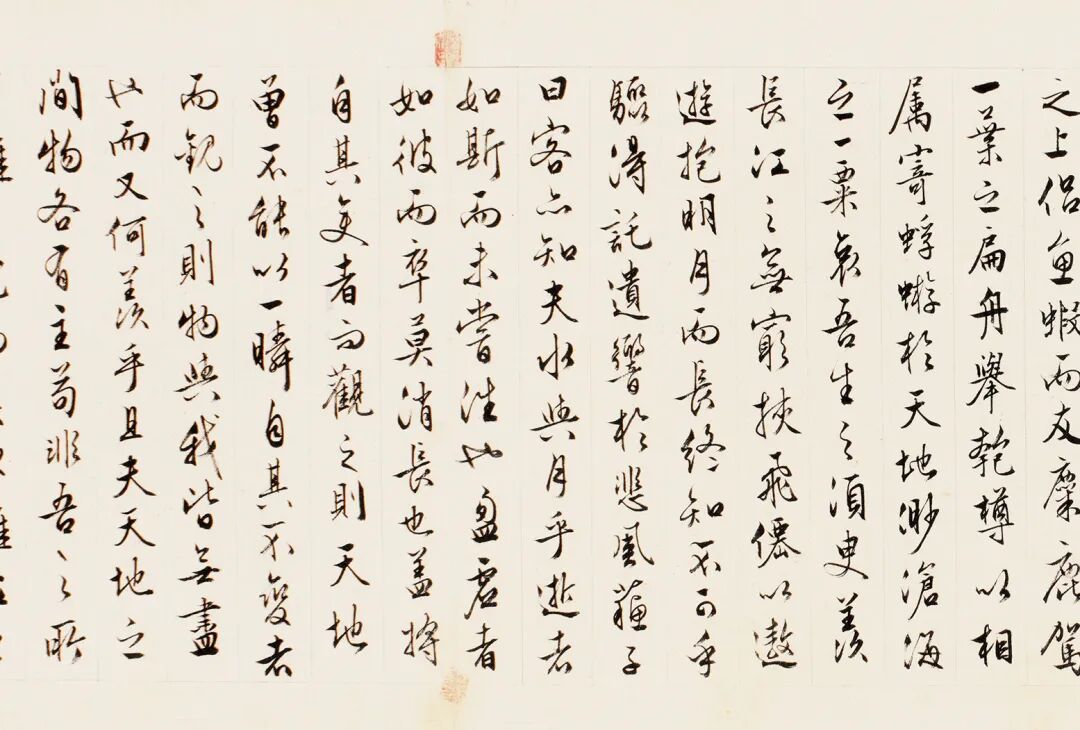 之上侣魚蝦而友麋鹿駕
一葉之扁舟舉匏樽以相
属寄蜉蝣於天地渺滄海
之一粟哀吾生之須臾羨
長江之無窮挾飛僊以遨
遊抱明月而長終知不可乎
驟得託遺響於悲風蘇子
曰客亦知夫水與月乎逝者
如斯而未嘗往也盈虛者
如彼而卒莫消長也盖将
自其変者而觀之則天地
曽不能以一瞬自其不變者
而觀之則物與我皆無盡
也而又何羨乎且夫天地之
間物各有主苟非吾之所